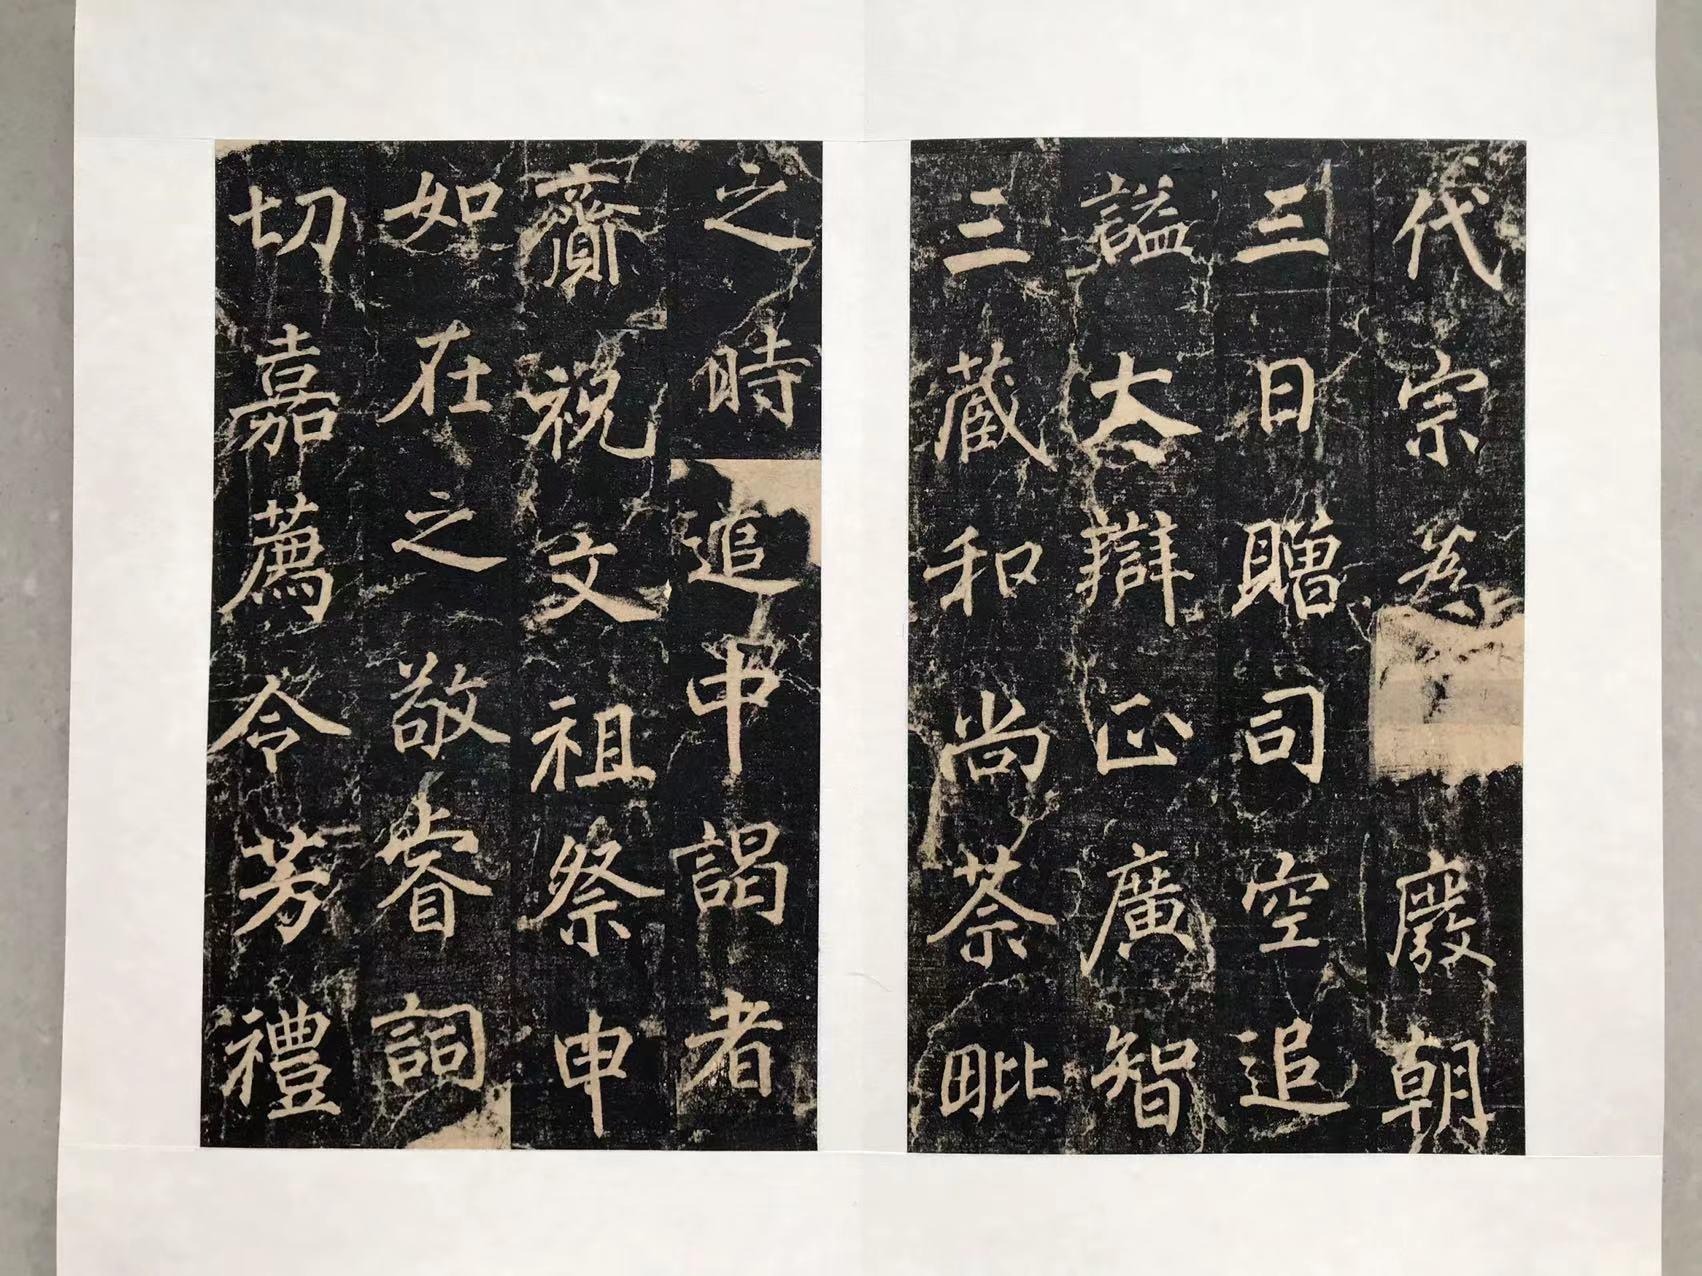 代宗為廢朝
三日贈司空追
謚大辯正廣智
三藏和尚荼毗
之時追申謁者
齎祝文祖祭申
如在之敬睿詞
切嘉薦令芳禮